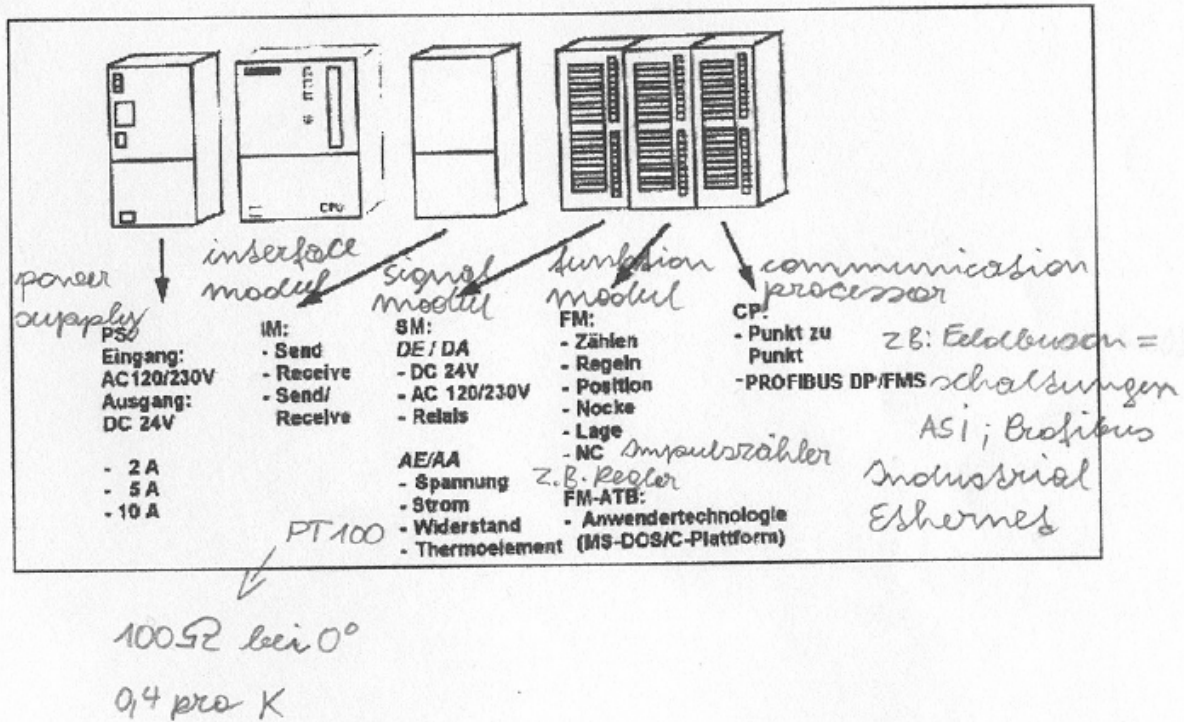 CPU
power
supply
interface
modul
signal
modul
funktion
modul
communication
processor
PS:
Eingang:
AC120/230V
Ausgang:
DC 24V
- 2 A
- 5 A
- 10 A
IM:
- Send
- Receive
- Send/
Receive
SM:
DE / DA
- DC 24V
- AC 120/230V
- Relais
AE/AA
- Spannung
- Strom
- Widerstand
- Thermoelement
PT 100
FM:
- Zählen
- Regeln
- Position
- Nocke
- Lage
- NC
Impulszähler
z.B. Regler
FM-ATB:
- Anwendertechnologie
(MS-DOS/C-Plattform)
CP:
- Punkt zu
Punkt
-PROFIBUS DP/FMS
zB:
schaltungen
ASI ; Profibus
Industrial
Ethernet
100Ω bei 0°
0,4 pro K